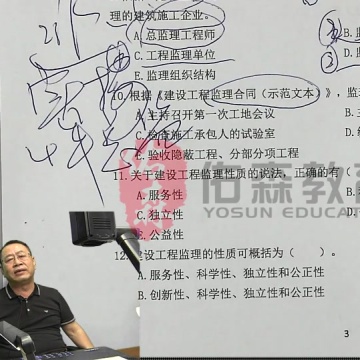 理的建筑施工企业。
A.总监理工程师
B.监
C.工程监理单位
D.
E.监理组织结构
10.根据《建设工程监理合同（示范文本）》，监
A.主持召开第一次工地会议
B.
C.检查施工承包人的试验室
D.
E.验收隐蔽工程、分部分项工程
11.关于建设工程监理性质的说法，正确的有（
A.服务性
B.
C.独立性
D.
E.公益性
佑森教育
YOSUN EDUCA
12.建设工程监理的性质可概括为（ ）。
A.服务性、科学性、独立性和公正性
B.创新性、科学性、独立性和公正性
3